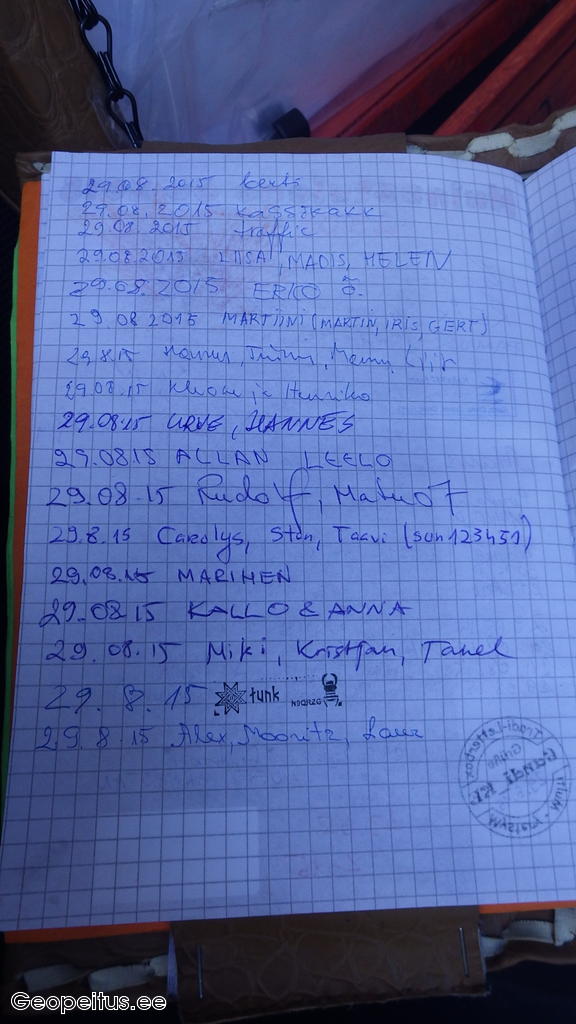 29.08.2015 kerti
29.08.2015 kassikakk
29.08.2015 traffic
29.08.2015 LIISA, MADIS, HELEN
29.08.2015 ERKO Õ.
29.08 2015 MARTIINI (MARTIN, IRIS, GERT)
29.8.15
29.08.15 ja Henriko
29.08.15 URVE, HANNES
29.08.15 ALLAN LEELO
29.08.15 Rudolf,
29.8.15 Carolys, Sten, Taavi (sun123451)
29.08.15 MARIHEN
29.08.15 KALLO & ANNA
29.08.15 Miki, Kristjan, Tanel
29.8.15 tunk
29.8.15 Alex, Mooritz, Laur
Geopeitus.ee